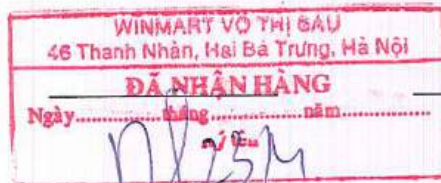 WINMART VÕ THỊ SÁU
46 Thanh Nhàn, Hai Bà Trưng, Hà Nội
ĐÃ NHẬN HÀNG
Ngày.............tháng.............năm.............